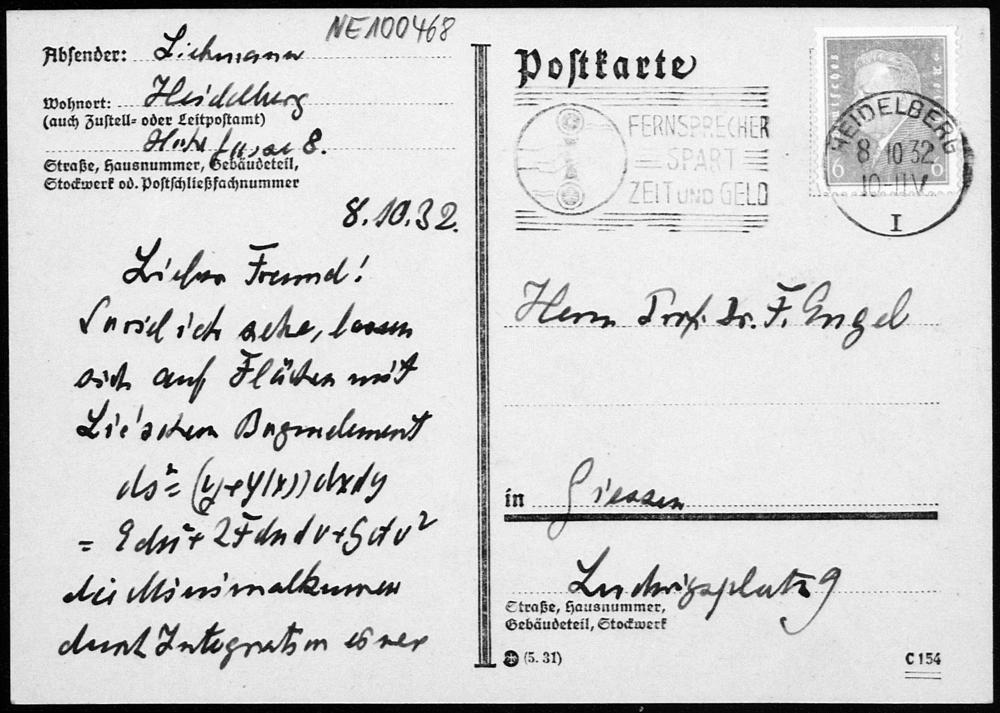 NE100468
Absender: Liebmann
Wohnort: Heidelberg
(auch Zustell- oder Leitpostamt)
8.
Straße, Hausnummer, Gebäudeteil,
Stockwerk od. Postschließfachnummer
8.10.32.
Lieber Freund!
Soviel ich sehe, lassen
sich auf Flächen mit
Lie'schem Bogenelement
ds² = (y+φ(x))dxdy
= Edu²+2Fdudv+Gdv²
die Minimalkurven
durch Integration einer
Postkarte
FERNSPRECHER
SPART
ZEIT UND GELD
Deutsches Reich
6 6
HEIDELBERG
8.10.32.
10-11V
I
Herrn Prof. Dr. F. Engel
in Giessen
Ludwigsplatz 9
Straße, Hausnummer,
Gebäudeteil, Stockwerk
(5.31)
C 154